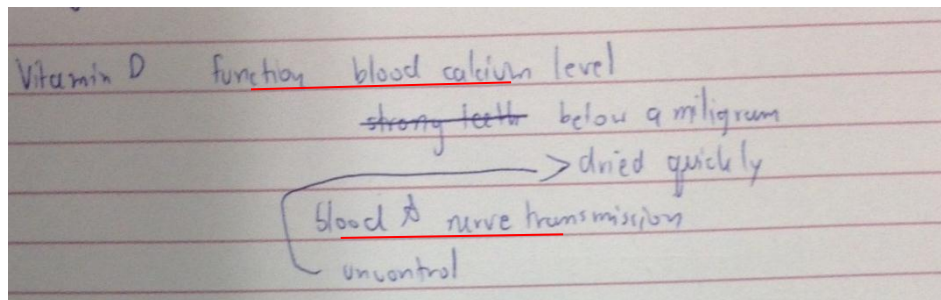 Vitamin D function blood calcium level
strong teeth below a miligram
dried quickly
blood & nerve transmission
uncontrol